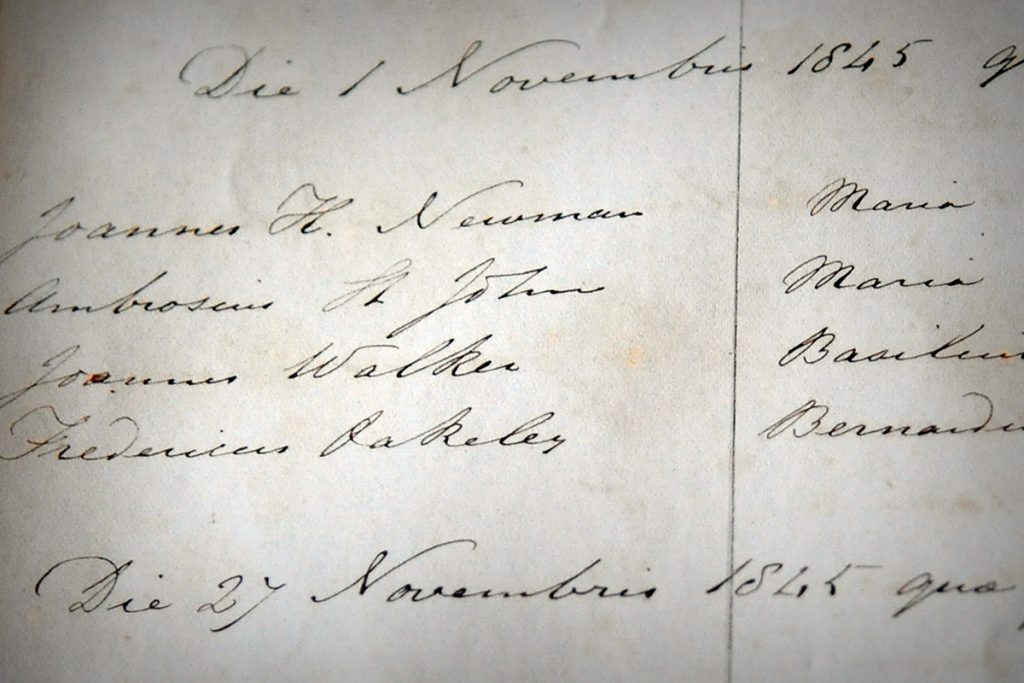 Die 1 Novembris 1845 q
Joannes H. Newman Maria
Ambrosius St John Maria
Joannes Walker Basilius
Fredericus Oakeley Bernardu
Die 27 Novembris 1845 quæ